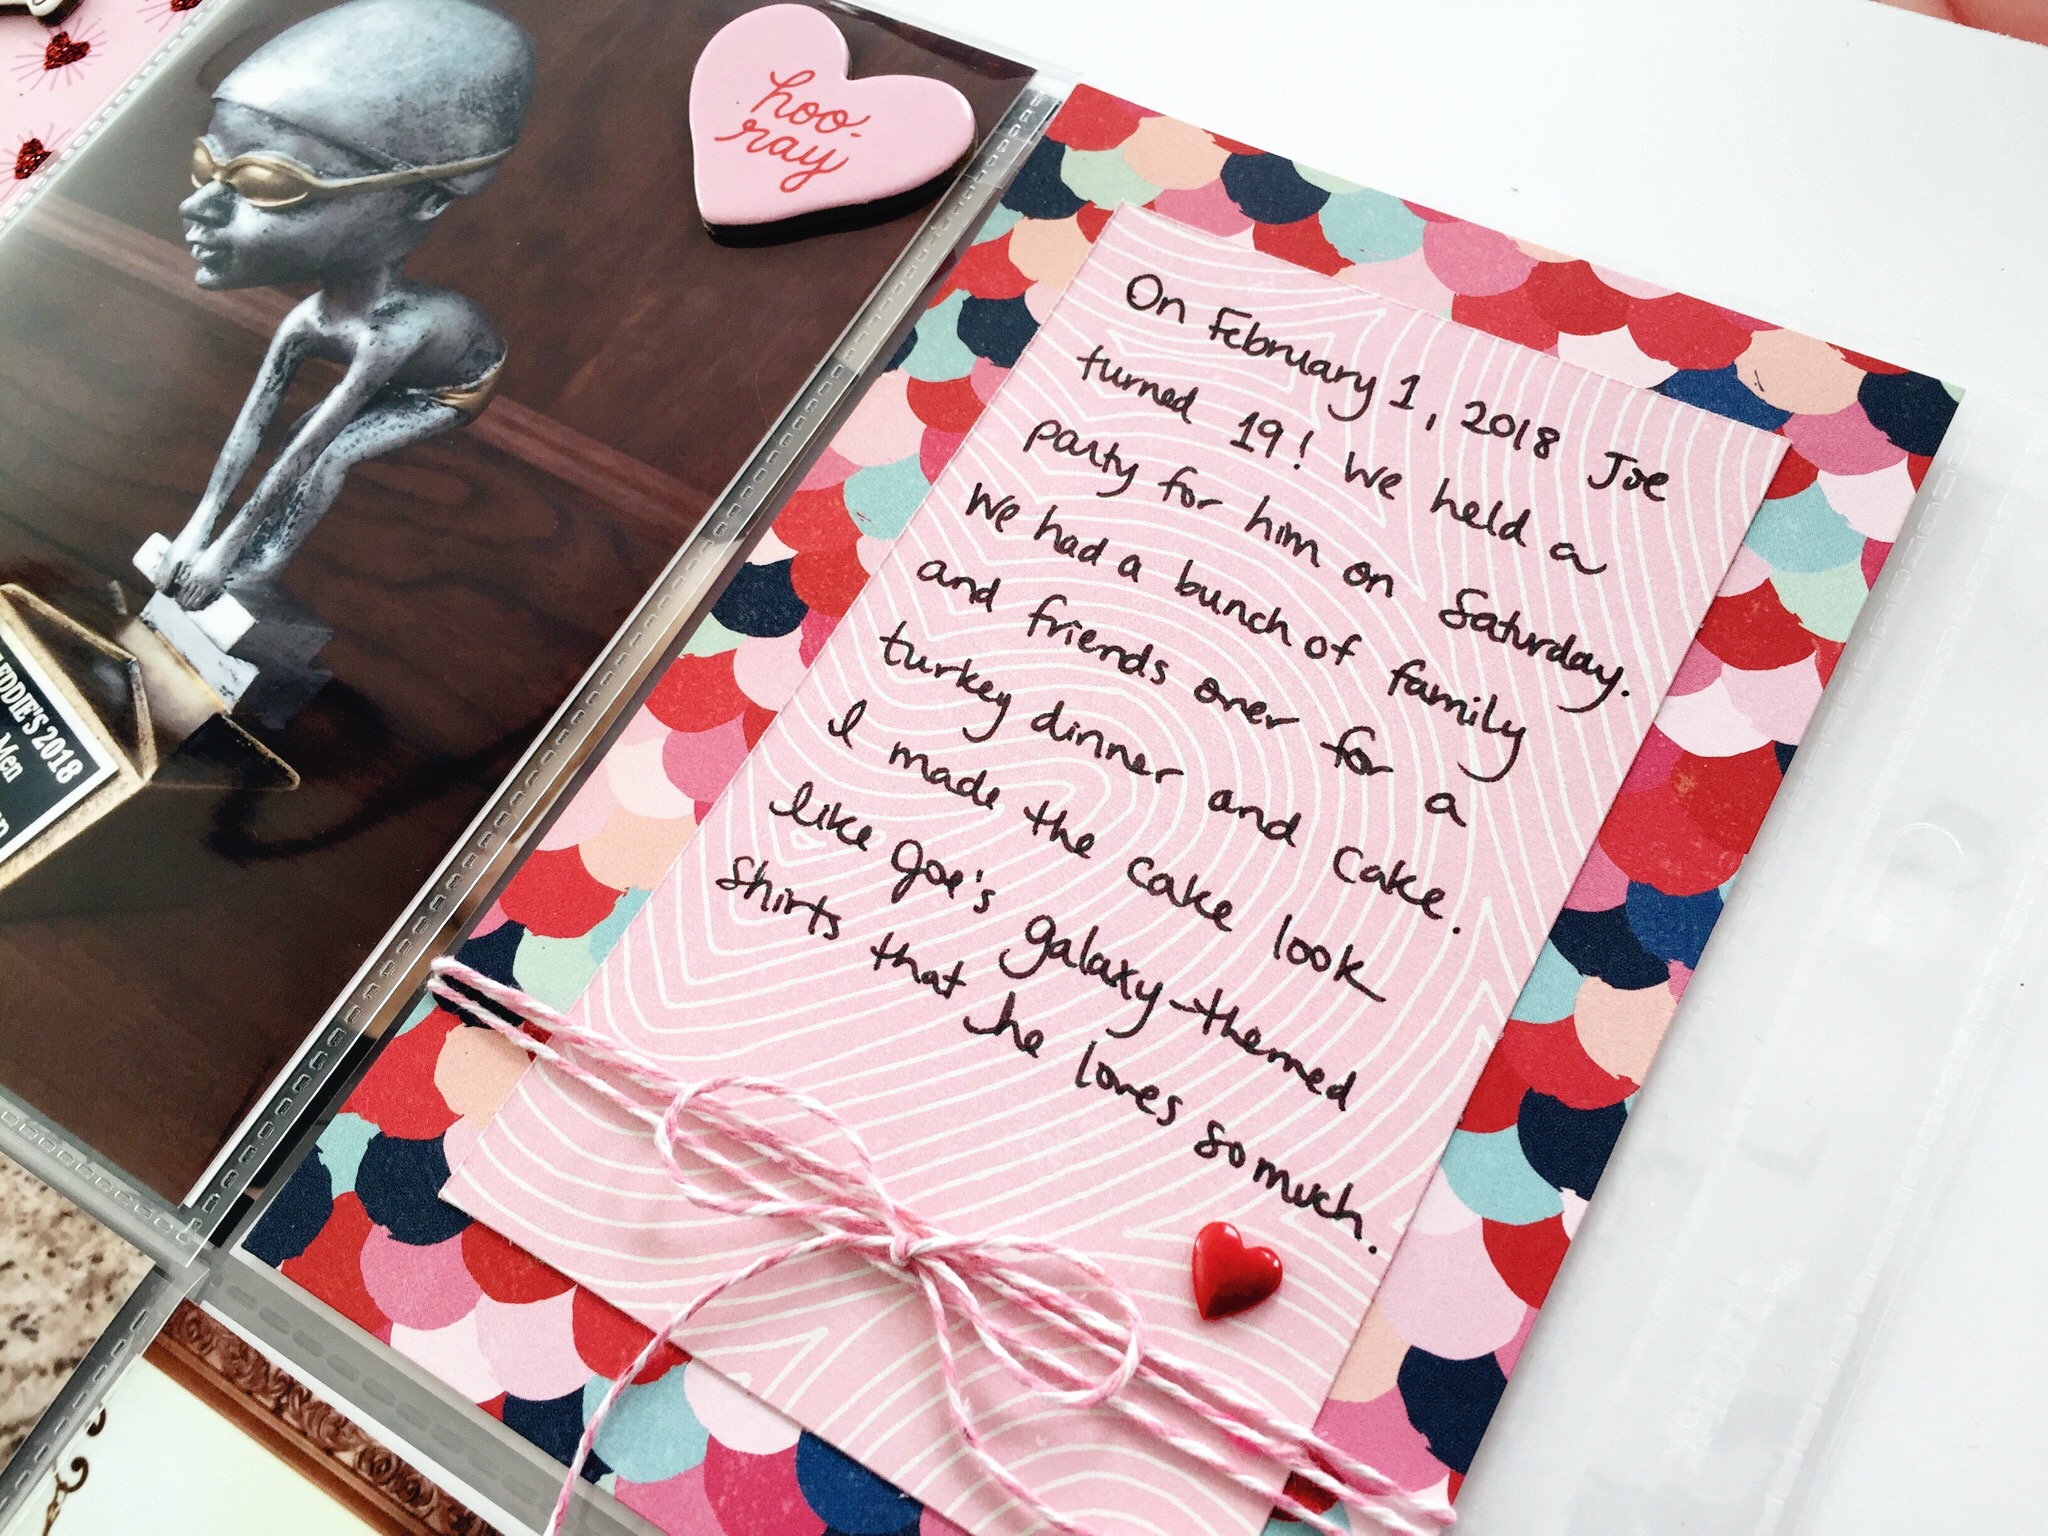 hoo-
ray
On February 1, 2018 Joe
turned 19! We held a
party for him on Saturday.
We had a bunch of family
and friends over for a
turkey dinner and cake.
I made the cake look
like Joe's galaxy-themed
shirts that he loves so much.
EDDIE'S 2018
Men